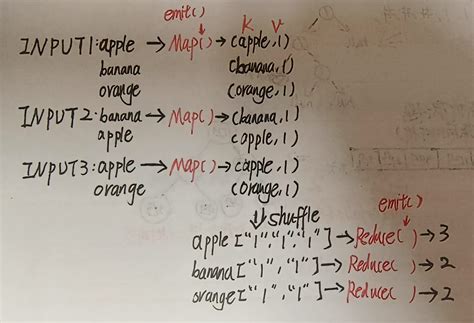 emit()
K V
INPUT1: apple → Map() → (apple, 1)
banana (banana, 1)
orange (orange, 1)
INPUT2: banana → Map() → (banana, 1)
apple (apple, 1)
INPUT3: apple → Map() → (apple, 1)
orange (orange, 1)
⇓ shuffle
emit()
apple ["1", "1", "1"] → Reduce( ) → 3
banana ["1", "1"] → Reduce( ) → 2
orange ["1", "1"] → Reduce( ) → 2